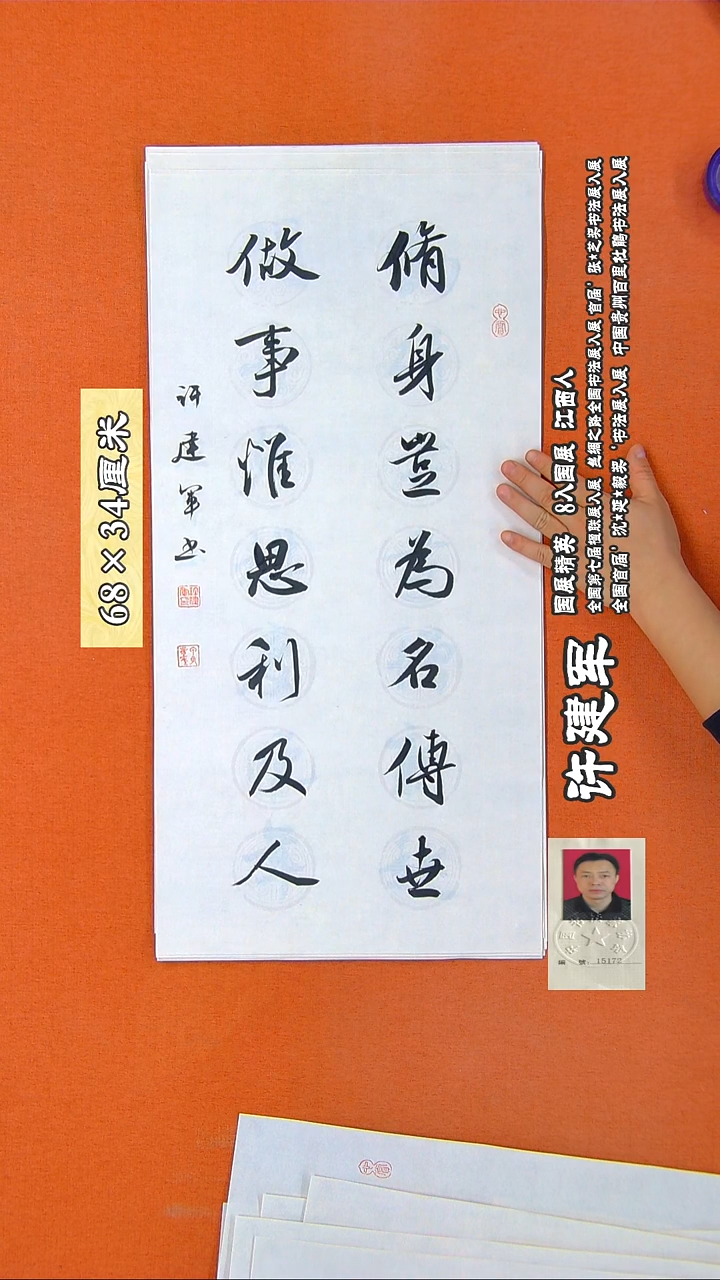 脩身豈為名傳世
做事惟思利及人
许建军书
68×34厘米
许建军
国展精英 8入国展 江西人
全国第七届楹联展入展 丝绸之路全国书法展入展 首届'张★芝奖书法展入展
全国首届'沈★延★毅奖'书法展入展 中国贵州百里杜鹃书法展入展
编 号: 15172